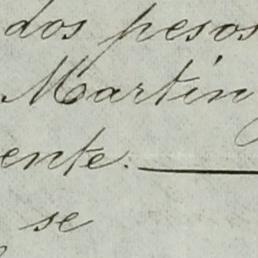 dos pesos
Martin
ente.
se